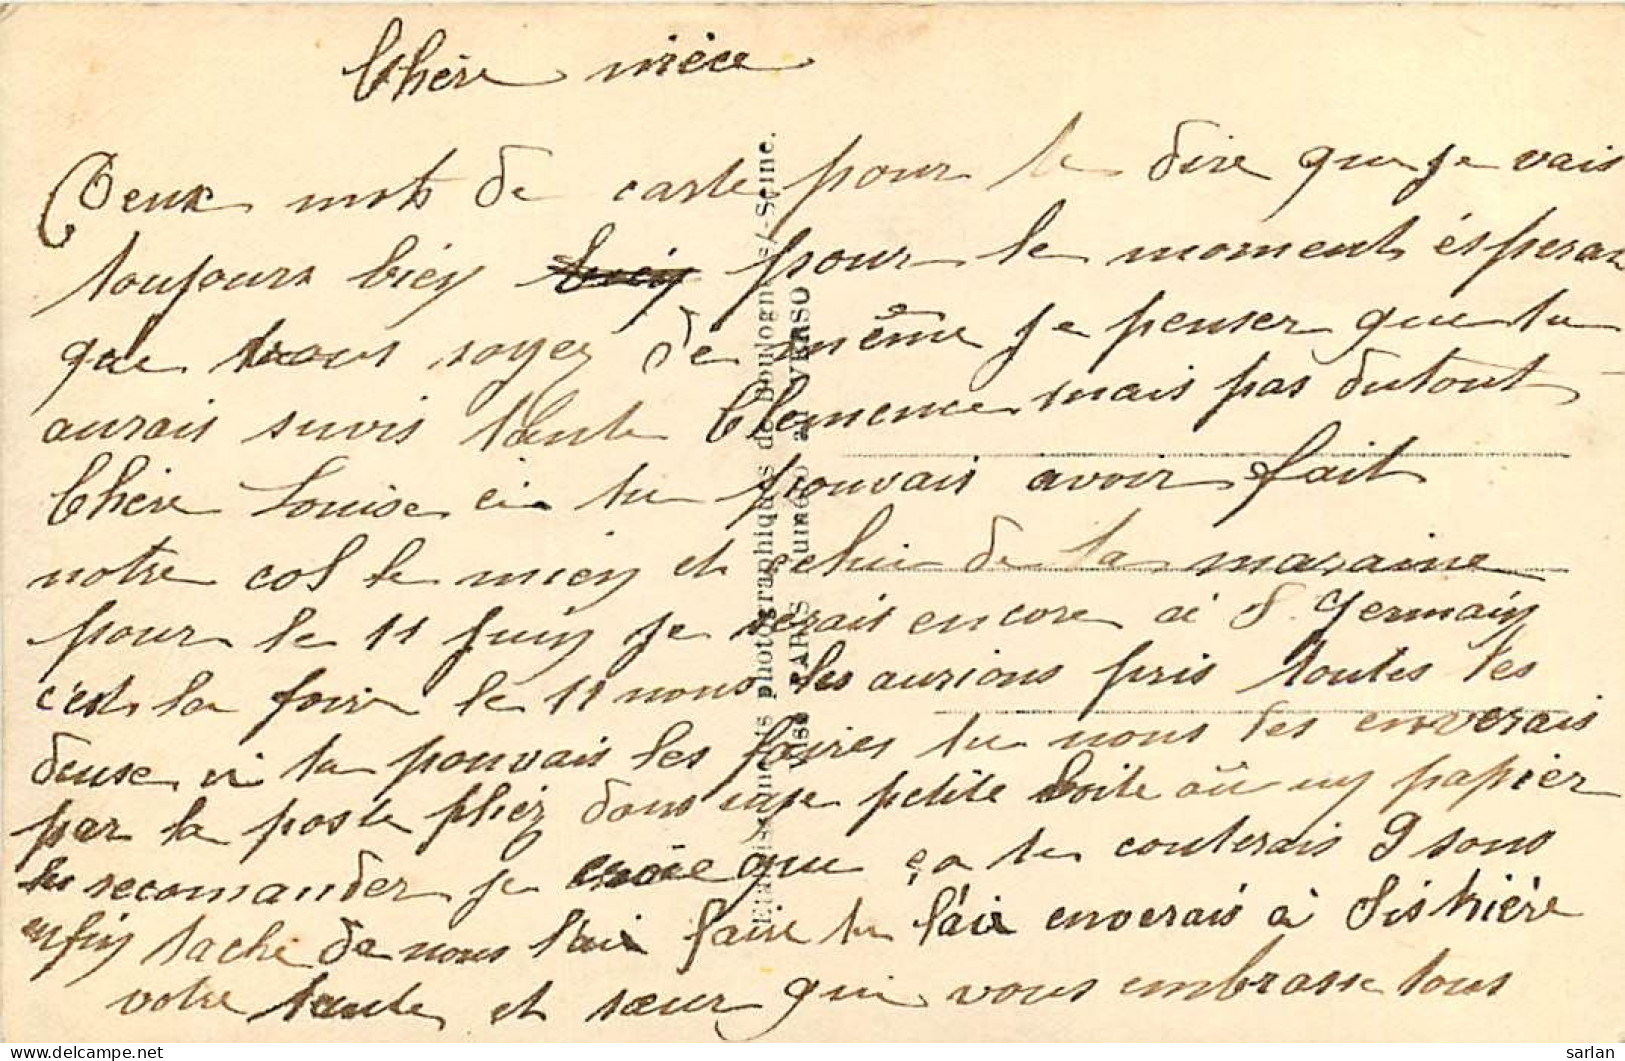 Chère nièce
Deux mots de carte pour te dire que je vais
toujours bien pour le moment ésperant
que vous soyez de même je penser que tu
aurais suvis tante Clemence mais pas dutout
Chère Louise si tu pouvais avoir fait
notre col le mien et celui de la maraine
pour le 11 juin je serais encore à S. Germain
c'est la foire le 11 nous les aurions pris toutes les
deuse si tu pouvais les faires tu nous les enverais
par la poste pliez dans une petite boite où un papier
recomander je croie que ça te couterais 9 sous
enfin tache de nous l'ai faire tu l'ai enverais à
votre tante et sœur qui vous embrasse tous
Etablissements photographiques de Boulogne s/-Seine.
Visé PARIS numéro au VERSO
sarlan